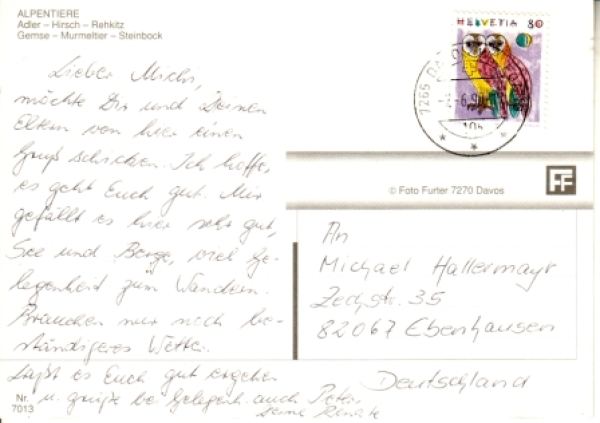 ALPENTIERE
Adler – Hirsch – Rehkitz
Gemse – Murmeltier – Steinbock
Lieber Michi,
möchte Dir und Deinen
Eltern von hier einen
Gruß schicken. Ich hoffe,
es geht Euch gut. Mir
gefällt es hier sehr gut,
See und Berge, viel Ge-
legenheit zum Wandern.
Brauchen nur noch be-
ständigeres Wetter.
Laßt es Euch gut ergehen
u. grüße bei Gelegenh. auch Peter
Renate
Nr.
7013
HELVETIA 80
7265 DA
10
© Foto Furter 7270 Davos
FF
An
Michael Hallermayr
Zechstr. 35
82067 Ebenhausen
Deutschland